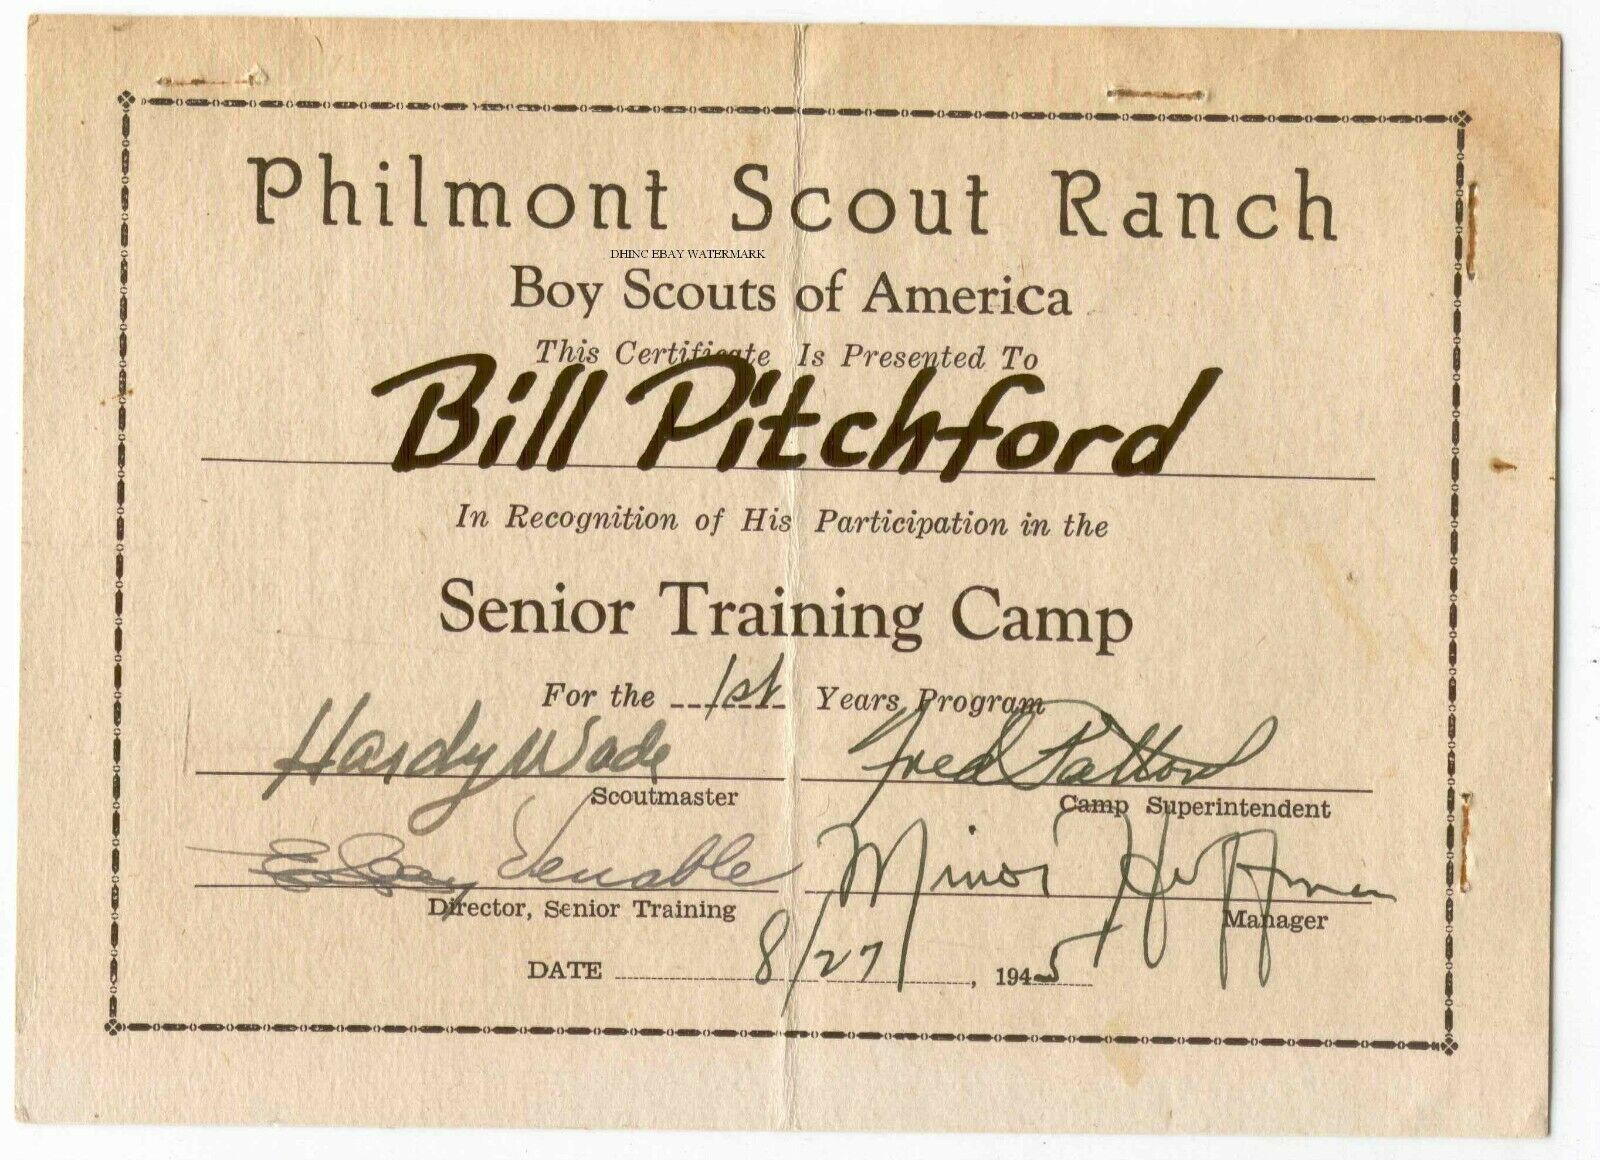 Philmont Scout Ranch
DHINC EBAY WATERMARK
Boy Scouts of America
This Certificate Is Presented To
Bill Pitchford
In Recognition of His Participation in the
Senior Training Camp
For the 1st Years Program
Hardy Wade Fred Patton
Scoutmaster Camp Superintendent
Venable Minor Huffman
Director, Senior Training Manager
DATE 8/27, 1945